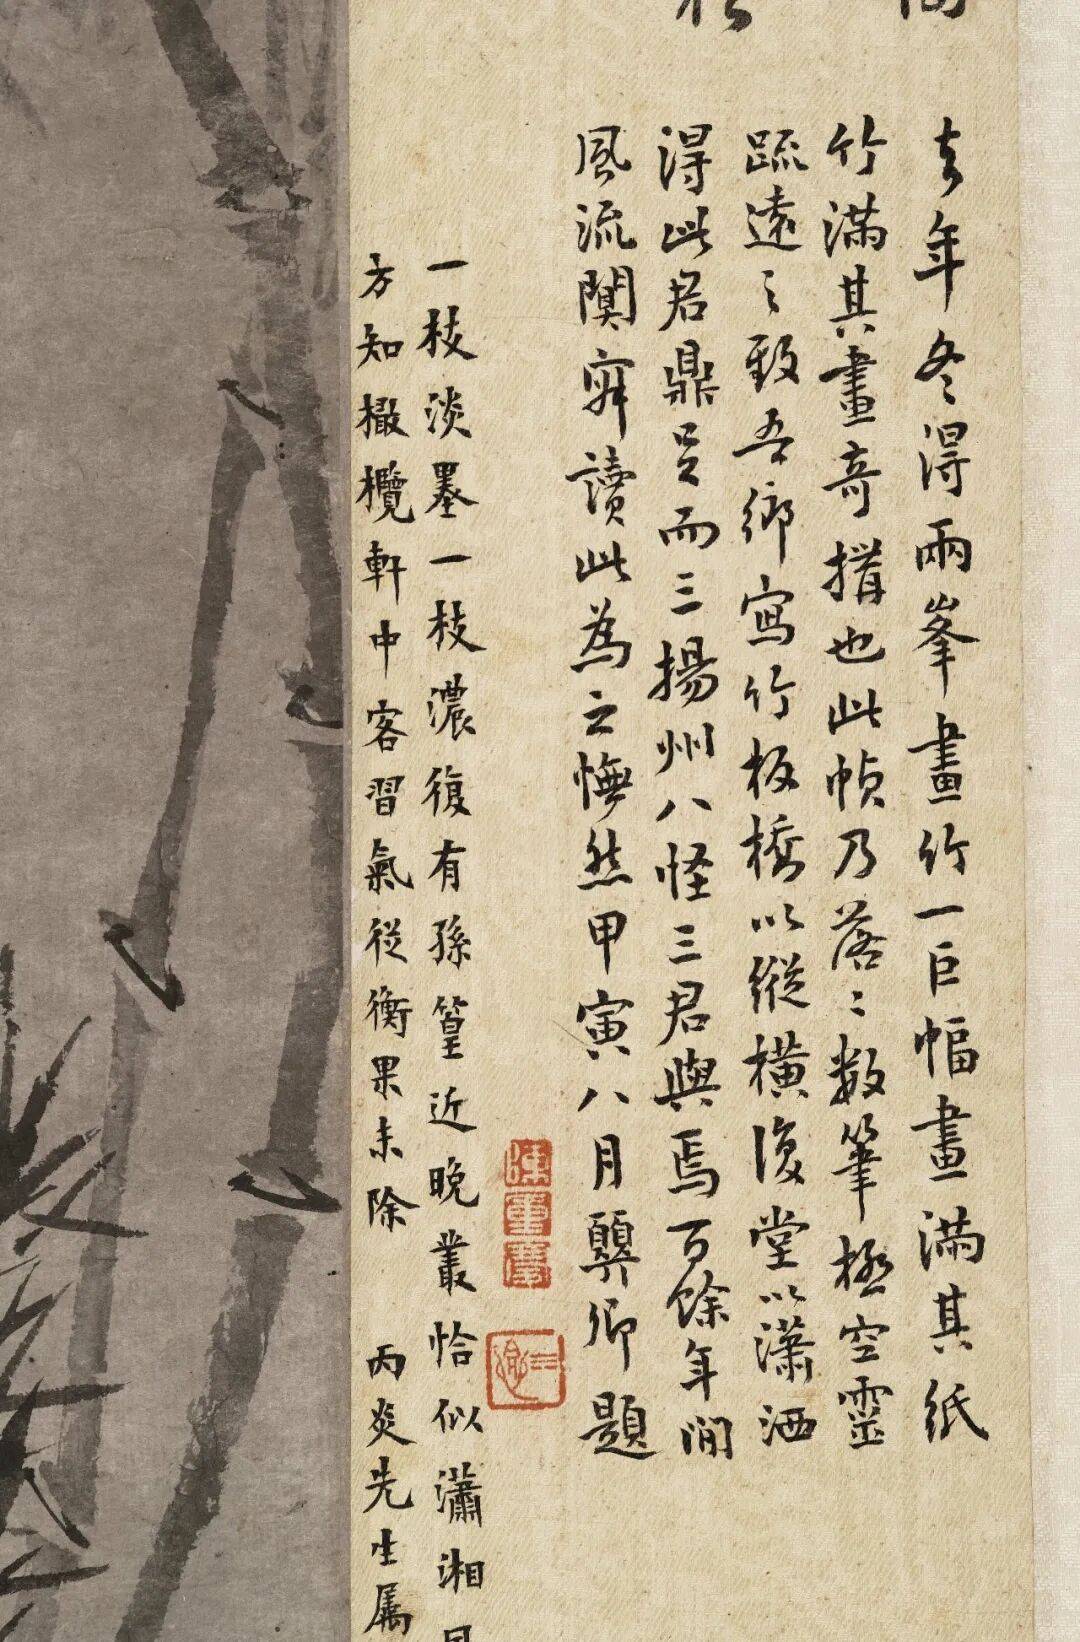 去年冬得兩峯畫竹一巨幅畫滿其紙
竹滿其畫奇搆也此幀乃落〻數筆極空靈
疏遠之致吾鄉寫竹板橋以縱橫復堂以瀟洒
得此君鼎足而三揚州八怪三君與焉百餘年間
風流闃寂讀此為之憮然甲寅八月巽卿題
陳重慶
一枝淡墨一枝濃復有孫篁近晚叢恰似瀟湘
方知橄欖軒中客習氣從衡果未除
丙炎先生属